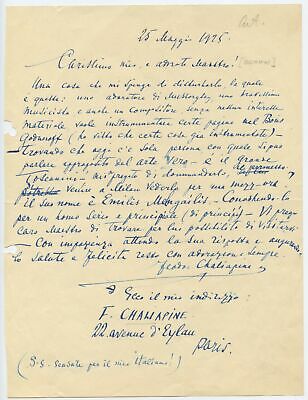 25 Maggio 1925
Carissimo mio, e adorato Maestro!
Una cosa che mi spinge di disturbarla, la quale
è questa: uno adoratore di Mussorgsky, bravissimo
Musicista e anche un compositore senza nessun interesse
materiale vuole instrumentare certe pagine nel Boris
Godunoff (ho visto che certe cose già instrumentate) —
trovando che oggi c'è Sola persona con quale si può
parlare apropposito del arte Vero — è il Grande
Toscanini — mi permetto
pregarlo di dommandarle,
venire a Milan Vederlo per una mezz-ora
il suo nome è Emilis Mengailis — Conoscendolo
per un homo Serio e principale (di principi) — Vi prego
Caro Maestro di trovare per lui possibilità di Visitarvi.
Con impazienza attendo la Sua risposta e augurandogli
la Salute e felicità resto con adorazione sempre.
Feodor Chaliapine
Ecco il mio indirizzo:
F. CHALIAPINE
22. avenue d'Eylau
Paris.
(P.S. Scusate per il mio "Italiano"!)